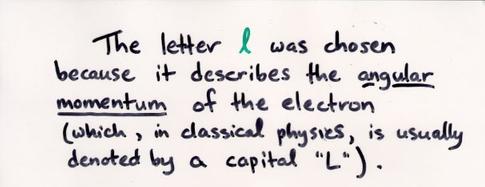 The letter l was chosen
because it describes the angular
momentum of the electron
(which, in classical physics, is usually
denoted by a capital "L").